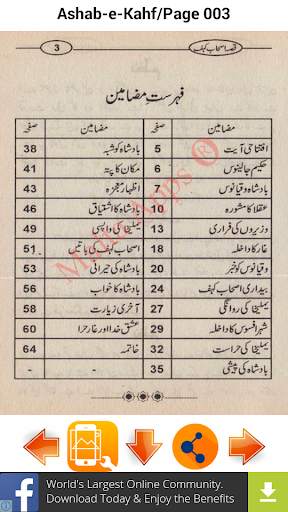 Ashab-e-Kahf/Page 003
قصہ اصحاب کہف 3
فہرستِ مضامین
مضامین صفحہ مضامین صفحہ
افتتاحی آیت 5 بادشاہ کو شبہ 38
حکیم جالینوس 6 مکان کا پتہ 41
بادشاہ دقیانوس 7 اظہارِ معجزہ 43
عقلا کا مشورہ 10 بادشاہ کا اشتیاق 46
وزیروں کی فراری 13 یملیخا کی واپسی 49
غار کا داخلہ 18 اصحاب کہف کی باتیں 51
دقیانوس کو خبر 20 بادشاہ کی حیرانی 53
بیداری اصحاب کہف 24 بادشاہ کا خواب 56
یملیخا کی روانگی 27 آخری زیارت 58
شہر افسوس کا داخلہ 29 عشق خدا اور غار حرا 60
یملیخا کی حراست 32 خاتمہ 64
بادشاہ کی پیشی 35 - -
World's Largest Online Community.
Download Today & Enjoy the Benefits